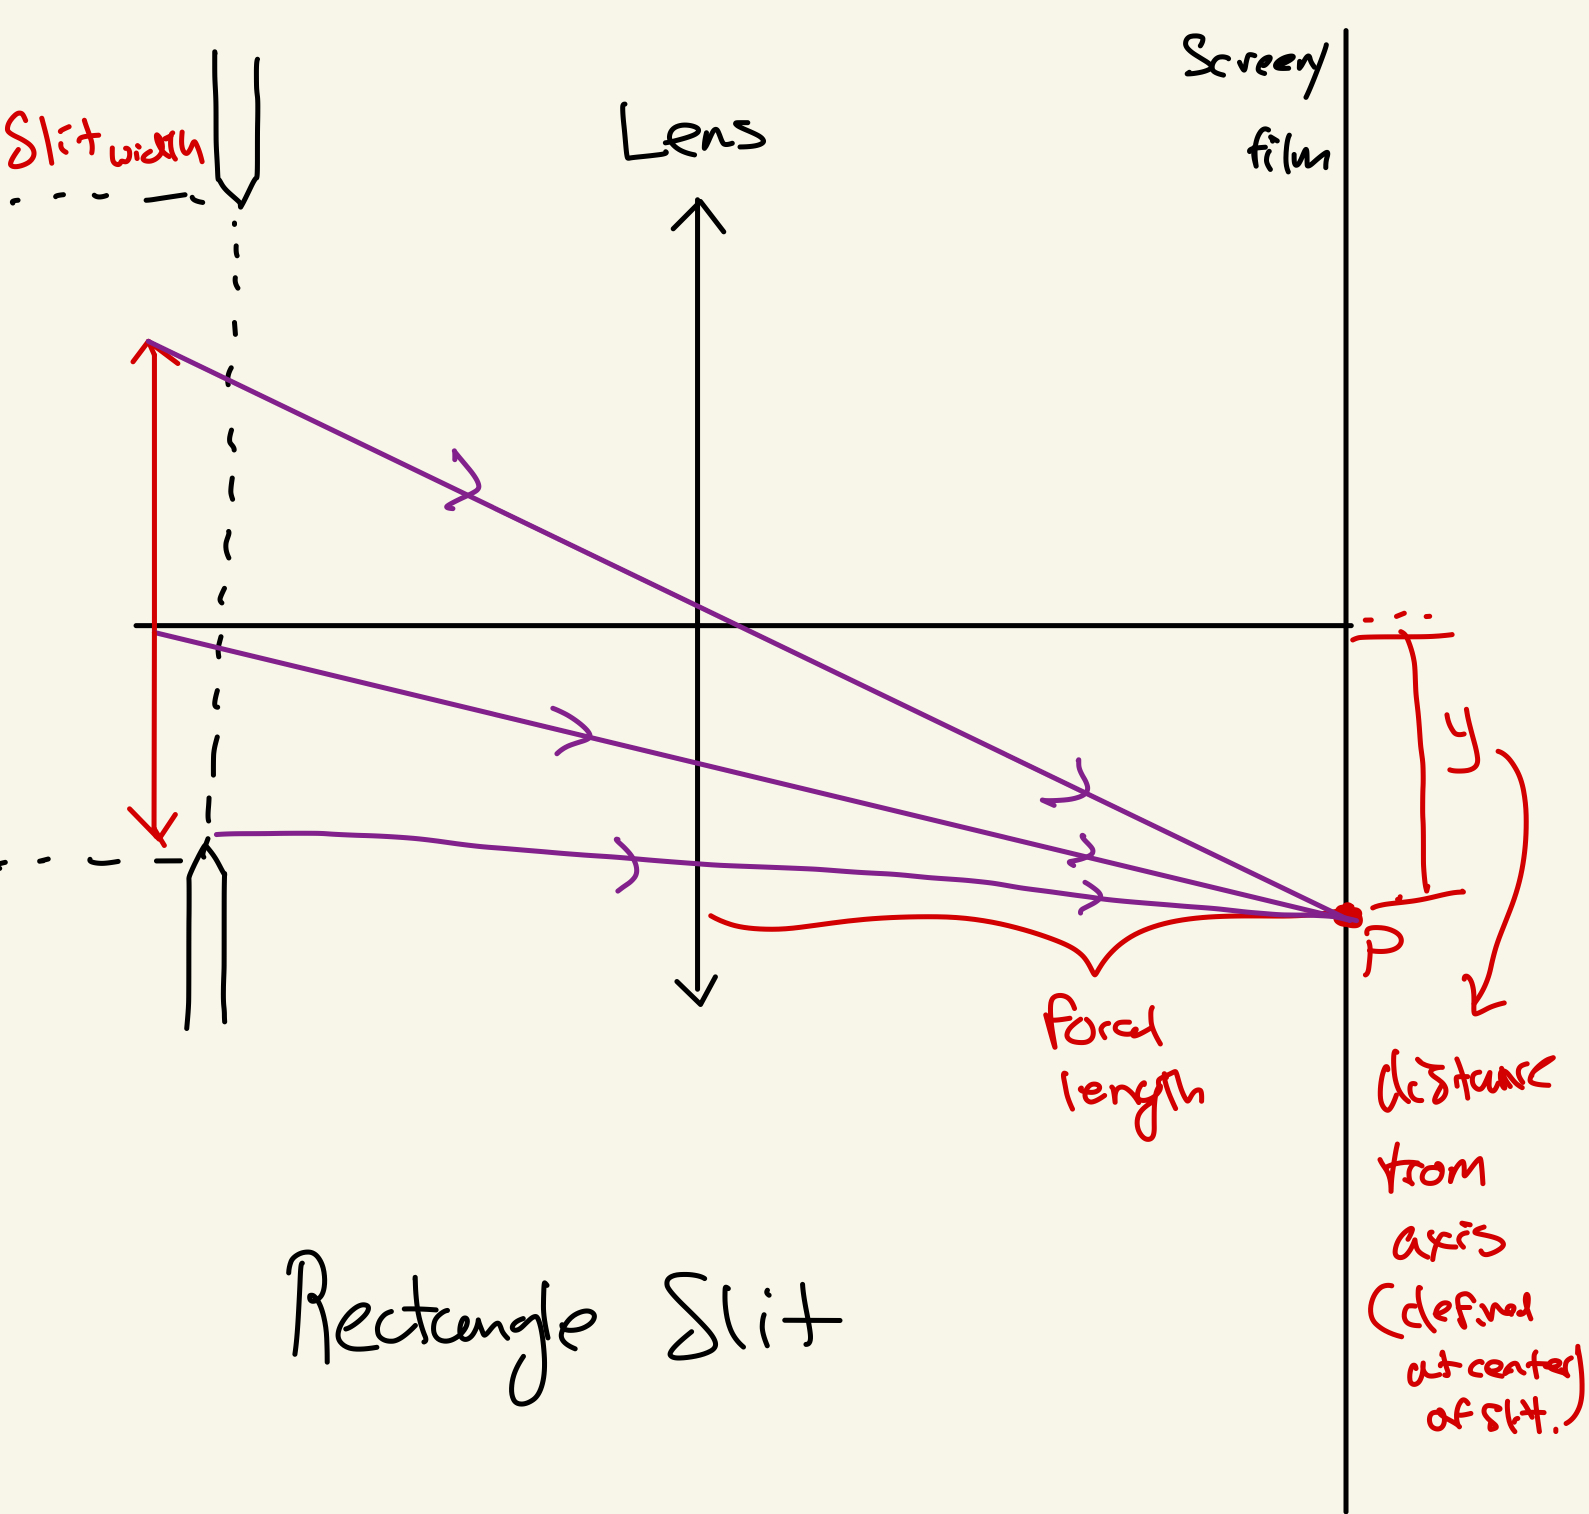 Slit width
Lens
Screen/
film
y
P
focal
length
distance
from
axis
(defined
at center
of slit.)
Rectangle Slit